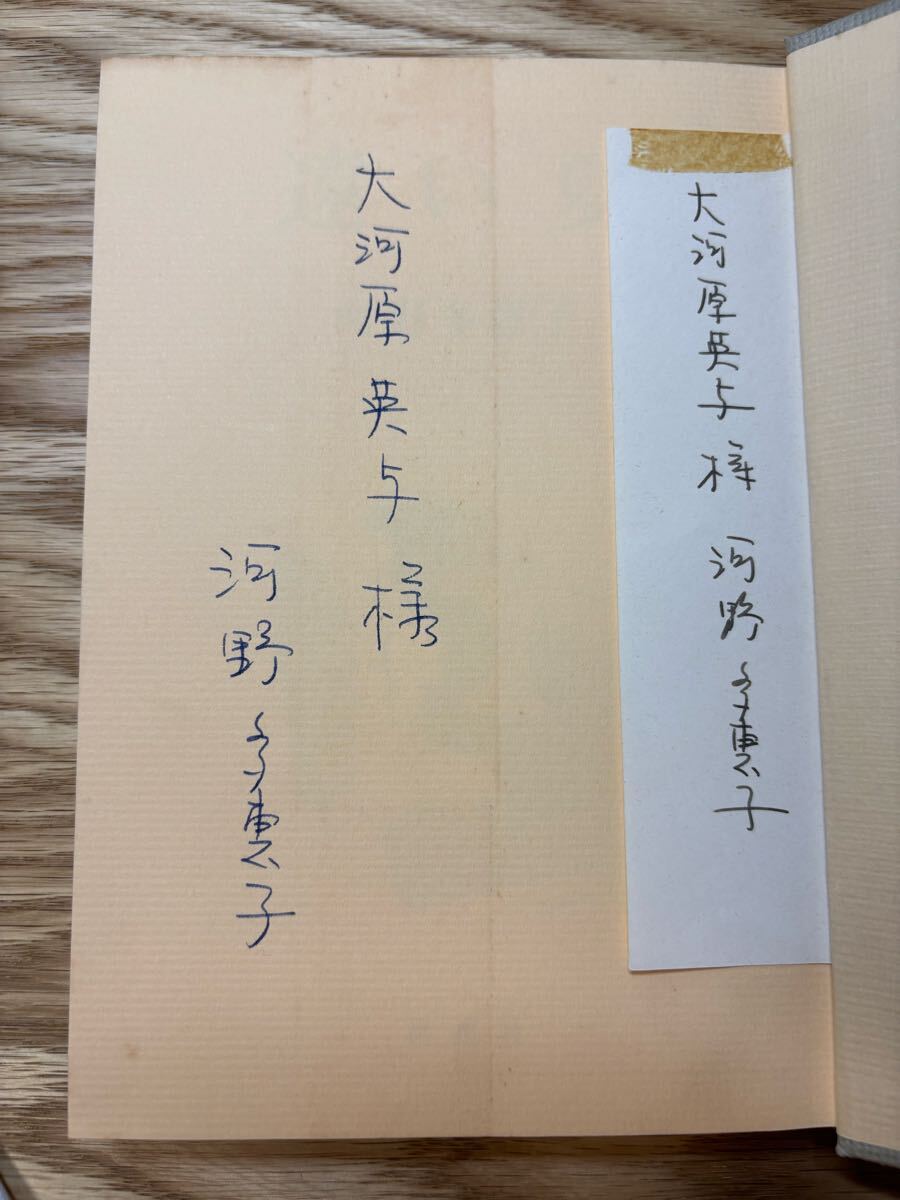 大河原英与様 河野多惠子
大河原英与様
河野多惠子